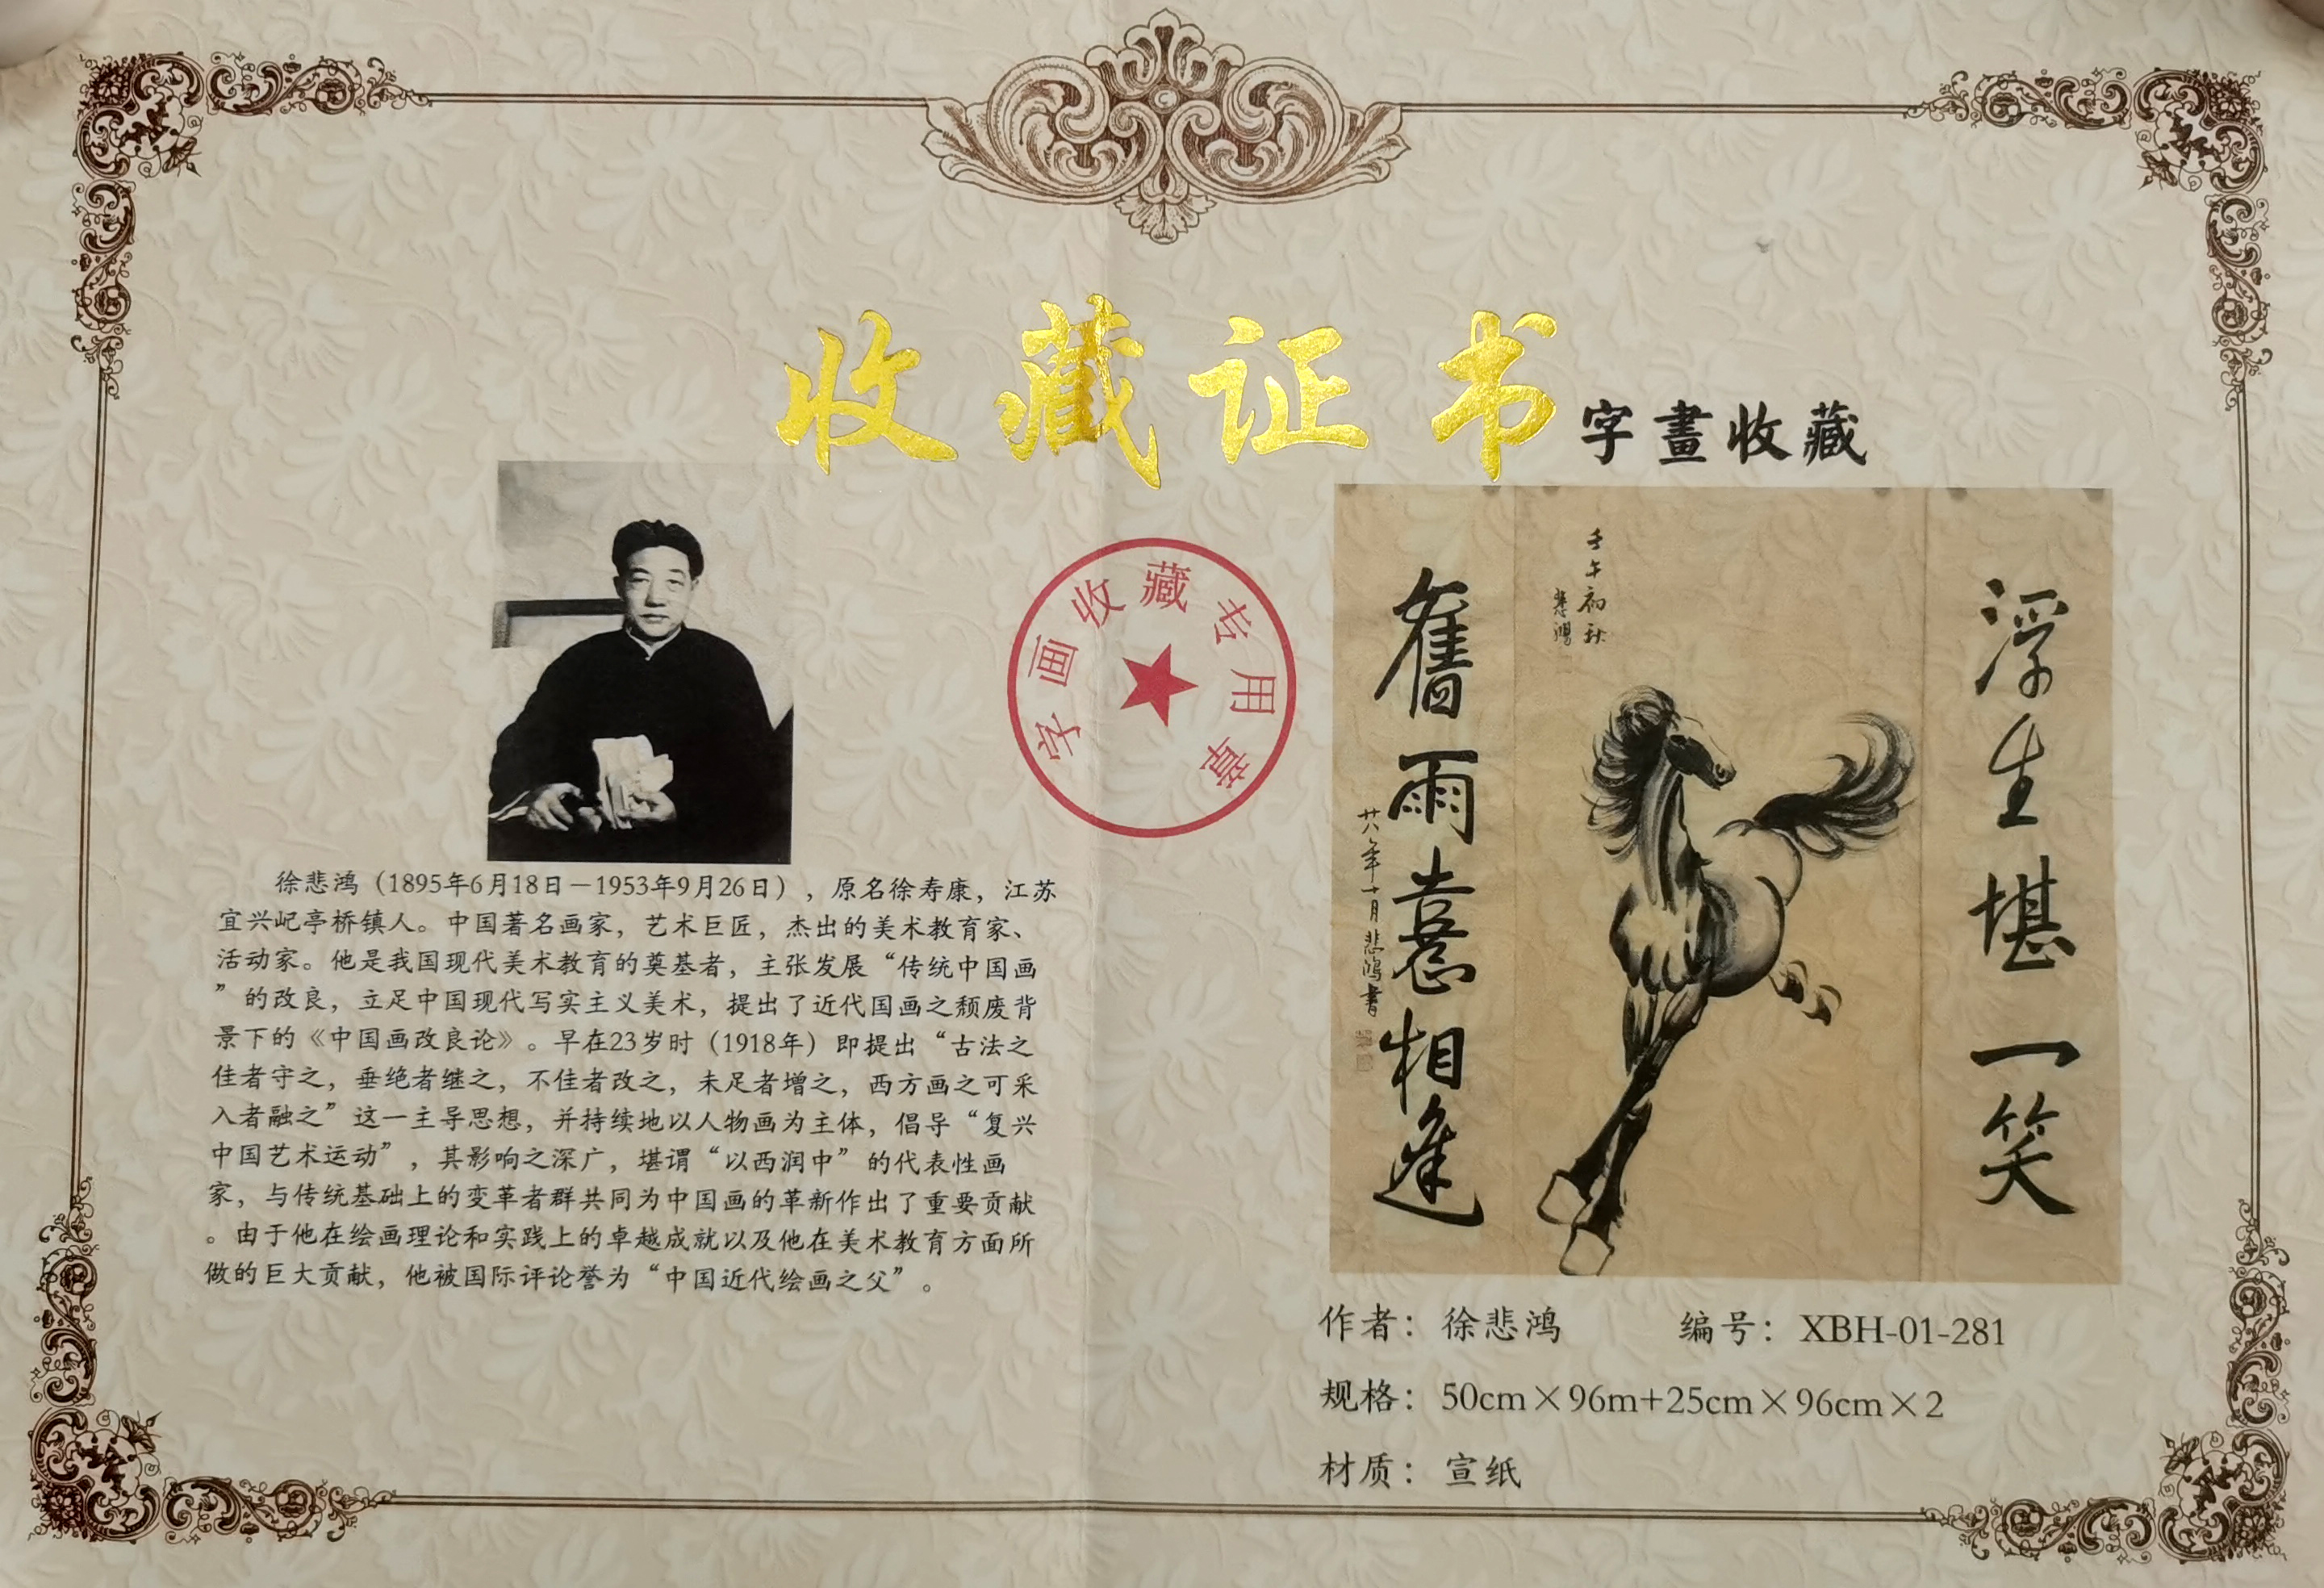 收藏证书
字畫收藏
字画收藏专用章
徐悲鸿（1895年6月18日－1953年9月26日），原名徐寿康，江苏
宜兴屺亭桥镇人。中国著名画家，艺术巨匠，杰出的美术教育家、
活动家。他是我国现代美术教育的奠基者，主张发展“传统中国画
”的改良，立足中国现代写实主义美术，提出了近代国画之颓废背
景下的《中国画改良论》。早在23岁时（1918年）即提出“古法之
佳者守之，垂绝者继之，不佳者改之，未足者增之，西方画之可采
入者融之”这一主导思想，并持续地以人物画为主体，倡导“复兴
中国艺术运动”，其影响之深广，堪谓“以西润中”的代表性画
家，与传统基础上的变革者群共同为中国画的革新作出了重要贡献
。由于他在绘画理论和实践上的卓越成就以及他在美术教育方面所
做的巨大贡献，他被国际评论誉为“中国近代绘画之父”。
浮生堪一笑
壬午初秋
悲鸿
舊雨憙相逢
廿八年十月悲鴻書
作者：徐悲鸿 编号：XBH-01-281
规格：50cm×96m+25cm×96cm×2
材质：宣纸